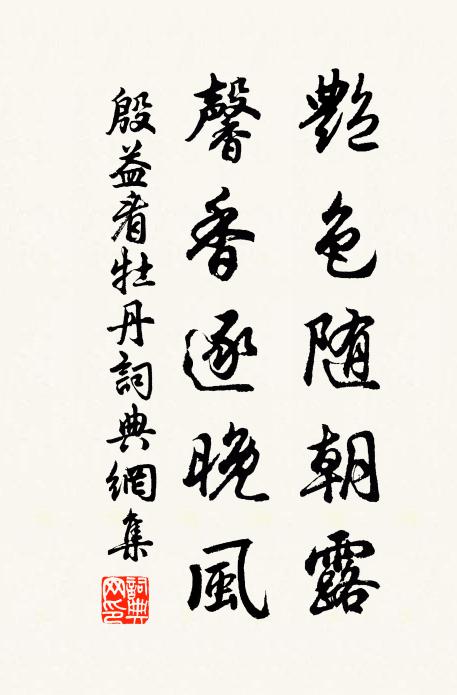 艷色随朝露
馨香逐晚風
殷益看牡丹詞典網集
詞典網印